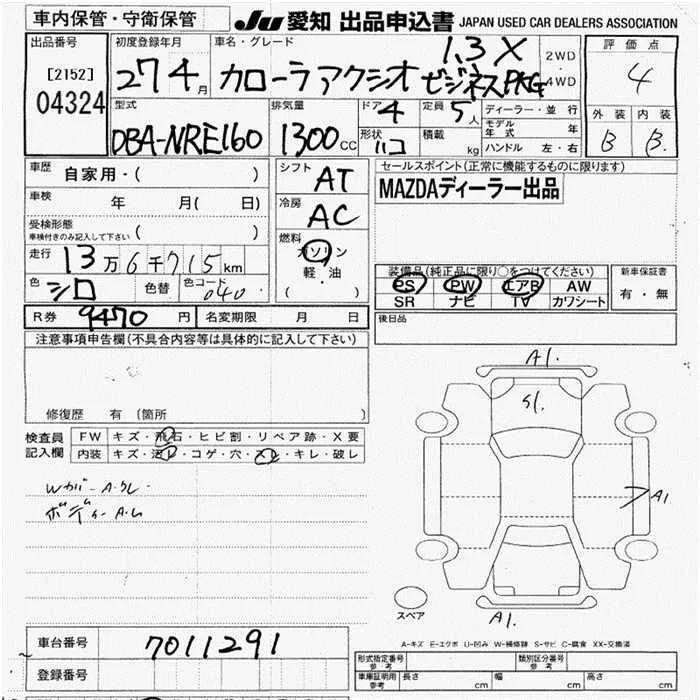 車内保管・守衛保管
JU 愛知 出品申込書 JAPAN USED CAR DEALERS ASSOCIATION
出品番号
[2152]
04324
初度登録年月
27 4 月
車名・グレード
カローラアクシオ 1.3X ビジネスPKG
2WD
4WD
評価点
4
外装 内装
B B
型式
DBA-NRE160
排気量
1300 CC
ドア 4
形状 ハコ
定員 5 人
積載 kg
ディーラー・並行
モデル年式 年
ハンドル 左・右
車歴 自家用・( )
車検 年 月( 日)
受検形態
車検付きのみ記入して下さい ( )
走行 13万6千715km
色 シロ 色替 色コード 040
シフト AT
冷房 AC
燃料 ガソリン
軽・油
( )
セールスポイント(正常に機能するものに限ります)
MAZDAディーラー出品
装備品(純正品に限り○をつけてください)
PS PW エアB AW
SR ナビ TV カワシート
新車保証書
有・無
後日品
R券 9470 円 名変期限 月 日
注意事項申告欄(不具合内容等は具体的に記入して下さい)
修復歴 有 (箇所 )
検査員記入欄
FW キズ・飛石・ヒビ割・リペア跡・X要
内装 キズ・汚レ・コゲ・穴・スレ・キレ・破レ
A1.
S1.
A1
A1.
スペア
A-キズ E-エクボ U-凹み W-補修跡 S-サビ C-腐食 XX-交換済
車台番号 7011291
登録番号
形式指定番号 参考 類別区分番号 参考
車庫証明用 参考 長さ cm 幅 cm 高さ cm